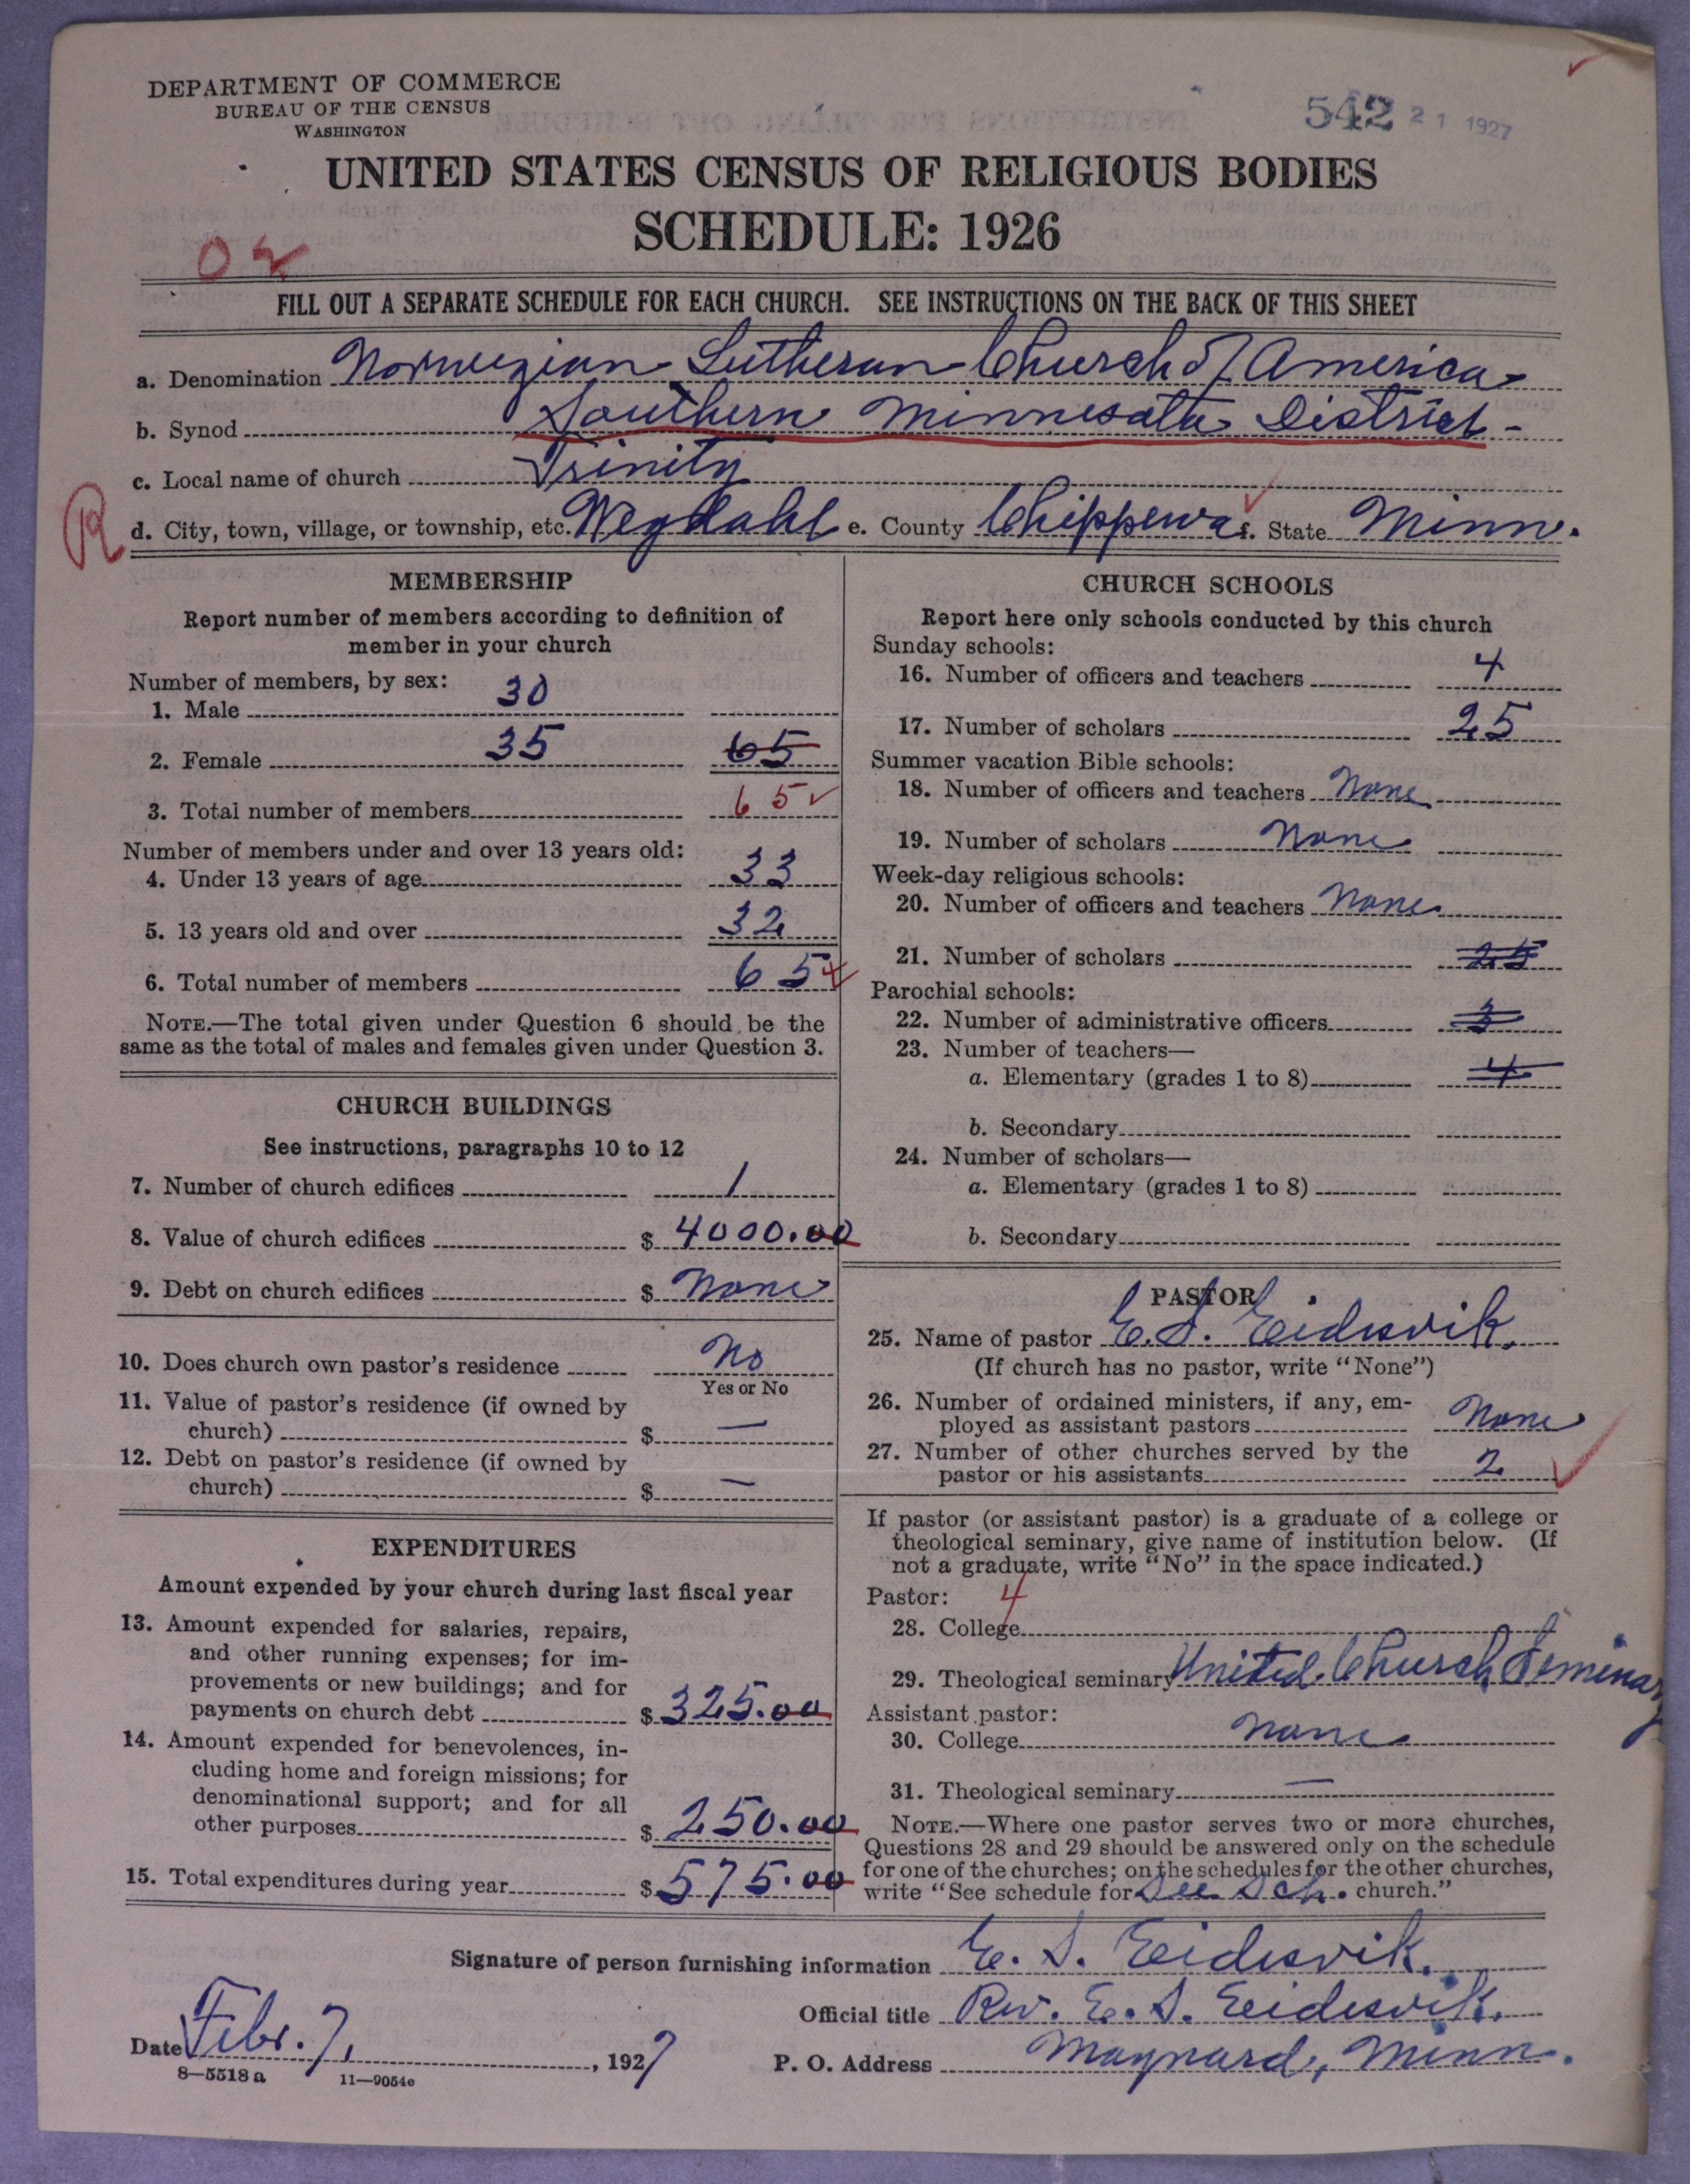 DEPARTMENT OF COMMERCE
BUREAU OF THE CENSUS
WASHINGTON
542 21 1927
UNITED STATES CENSUS OF RELIGIOUS BODIES
SCHEDULE: 1926
FILL OUT A SEPARATE SCHEDULE FOR EACH CHURCH. SEE INSTRUCTIONS ON THE BACK OF THIS SHEET
a. Denomination Norwegian Lutheran Church of America
b. Synod Southern Minnesota District -
c. Local name of church Trinity
R
d. City, town, village, or township, etc. Wegdahl e. County Chippewa f. State Minn.
MEMBERSHIP
Report number of members according to definition of
member in your church
Number of members, by sex:
1. Male 30
2. Female 35 65
3. Total number of members 65
Number of members under and over 13 years old:
4. Under 13 years of age 33
5. 13 years old and over 32
6. Total number of members 65
NOTE.—The total given under Question 6 should be the
same as the total of males and females given under Question 3.
CHURCH BUILDINGS
See instructions, paragraphs 10 to 12
7. Number of church edifices 1
8. Value of church edifices $ 4000.00
9. Debt on church edifices $ None
10. Does church own pastor's residence No
Yes or No
11. Value of pastor's residence (if owned by
church) $ —
12. Debt on pastor's residence (if owned by
church) $ —
EXPENDITURES
Amount expended by your church during last fiscal year
13. Amount expended for salaries, repairs,
and other running expenses; for im-
provements or new buildings; and for
payments on church debt $ 325.00
14. Amount expended for benevolences, in-
cluding home and foreign missions; for
denominational support; and for all
other purposes $ 250.00
15. Total expenditures during year $ 575.00
CHURCH SCHOOLS
Report here only schools conducted by this church
Sunday schools:
16. Number of officers and teachers 4
17. Number of scholars 25
Summer vacation Bible schools:
18. Number of officers and teachers None
19. Number of scholars None
Week-day religious schools:
20. Number of officers and teachers None
21. Number of scholars 25
Parochial schools:
22. Number of administrative officers 3
23. Number of teachers—
a. Elementary (grades 1 to 8) 4
b. Secondary
24. Number of scholars—
a. Elementary (grades 1 to 8)
b. Secondary
PASTOR
25. Name of pastor E. S. Eidesvik.
(If church has no pastor, write "None")
26. Number of ordained ministers, if any, em-
ployed as assistant pastors None
27. Number of other churches served by the
pastor or his assistants 2
If pastor (or assistant pastor) is a graduate of a college or
theological seminary, give name of institution below. (If
not a graduate, write "No" in the space indicated.)
Pastor: 4
28. College
29. Theological seminary United Church Seminary
Assistant pastor:
30. College None
31. Theological seminary —
NOTE.—Where one pastor serves two or more churches,
Questions 28 and 29 should be answered only on the schedule
for one of the churches; on the schedules for the other churches,
write "See schedule for See Sch. church."
Signature of person furnishing information E. S. Eidesvik.
Official title Rev. E. S. Eidesvik.
Date Febr. 7, , 1927
P. O. Address Maynard, Minn.
8—5518 a 11—9054c